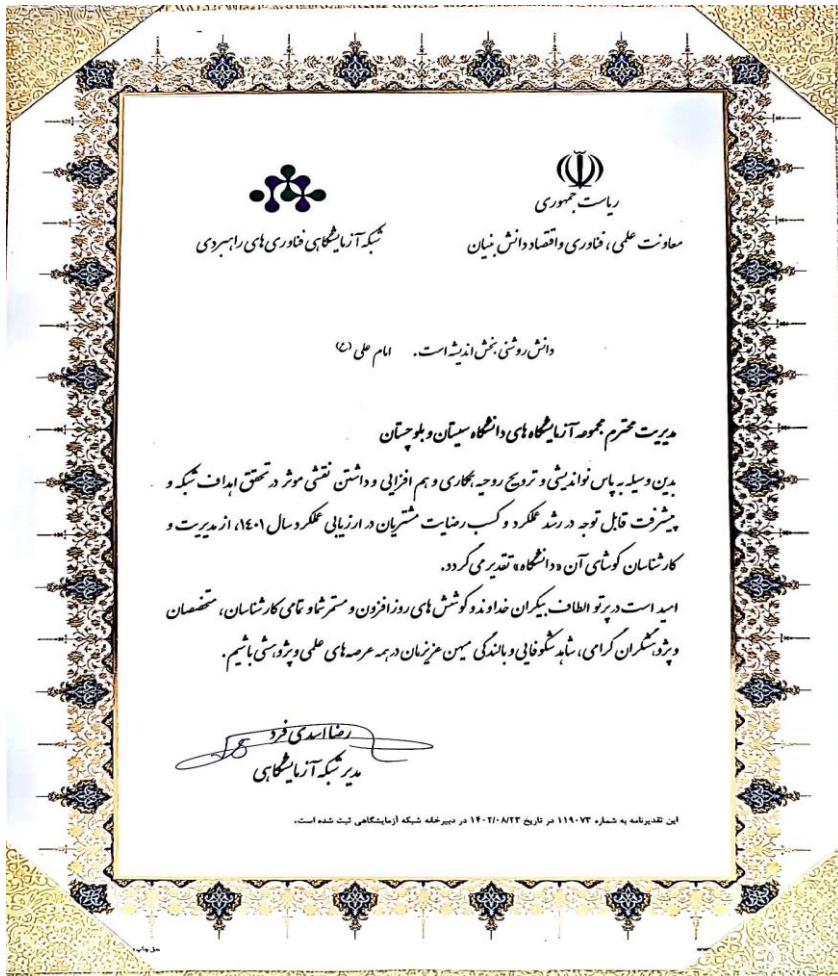 ریاست جمهوری
معاونت علمی، فناوری و اقتصاد دانش بنیان
شبکه آزمایشگاهی فناوری های راهبردی
دانش روشنی بخش اندیشه است. امام علی (ع)
مدیریت محترم مجموعه آزمایشگاه های دانشگاه سیستان و بلوچستان
بدین وسیله به پاس نواندیشی و ترویج روحیه همکاری و هم افزایی و داشتن نقشی موثر در تحقق اهداف شبکه و
پیشرفت قابل توجه در رشد عملکرد و کسب رضایت مشتریان در ارزیابی عملکرد سال ۱۴۰۱، از مدیریت و
کارشناسان کوشای آن «دانشگاه» تقدیر می گردد.
امید است در پرتو الطاف بیکران خداوند و کوشش های روزافزون و مستمر شما و تمامی کارشناسان، متخصصان
و پژوهشگران گرامی، شاهد شکوفایی و بالندگی میهن عزیزمان در همه عرصه های علمی و پژوهشی باشیم.
رضا اسدی فرد
مدیر شبکه آزمایشگاهی
این تقدیرنامه به شماره ۱۱۹۰۷۳ در تاریخ ۱۴۰۲/۰۸/۲۳ در دبیرخانه شبکه آزمایشگاهی ثبت شده است.